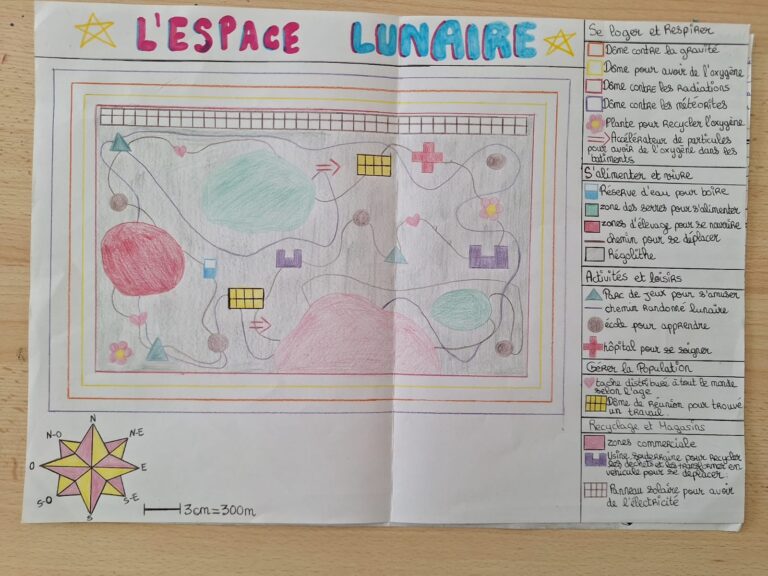 L'ESPACE LUNAIRE
Se loger et Respirer
Dôme contre la gravité
Dôme pour avoir de l'oxygène
Dôme contre les Radiations
Dôme contre les météorites
Plante pour Recycler l'oxygène
Accélérateur de particules
pour avoir de l'oxygène dans les
batiments
S'alimenter et vivre
Réserve d'eau pour boire
zone des serres pour s'alimenter
zones d'élevage pour se nourrire
chemin pour se déplacer
Régolithe
Activités et loisirs
Parc de jeux pour s'amuser
chemin Randoné lunaire
école pour apprendre
hôpital pour se soigner
Gérer la Population
tâche distribuée à tout le monde
selon l'age
Dôme de Réunion pour trouvé
un travail.
Recyclage et Magasins
zones commerciale
Usine souterraine pour recycler
les déchets et les transformer en
véhicule pour se déplacer
Panneau solaire pour avoir
de l'électricité
N
N-O
N-E
O
E
S-O
S-E
S
3cm=300m